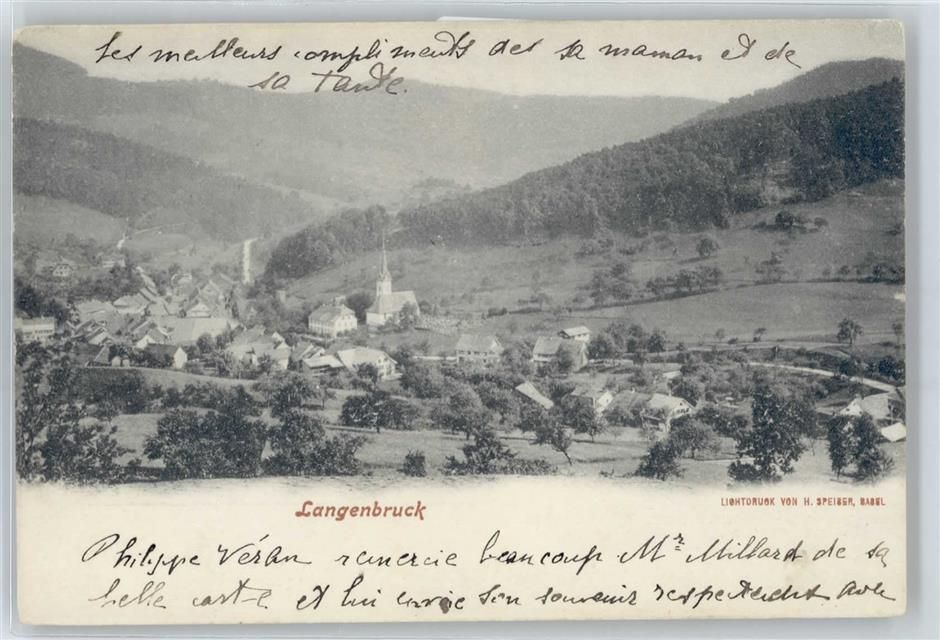 Les meilleurs compliments de sa maman et de
sa tante.
Langenbruck
LICHTDRUCK VON H. SPEISER, BASEL
Philippe Véran remercie beaucoup Mr Millard de sa
belle carte et lui envoie son souvenir respectueux avec